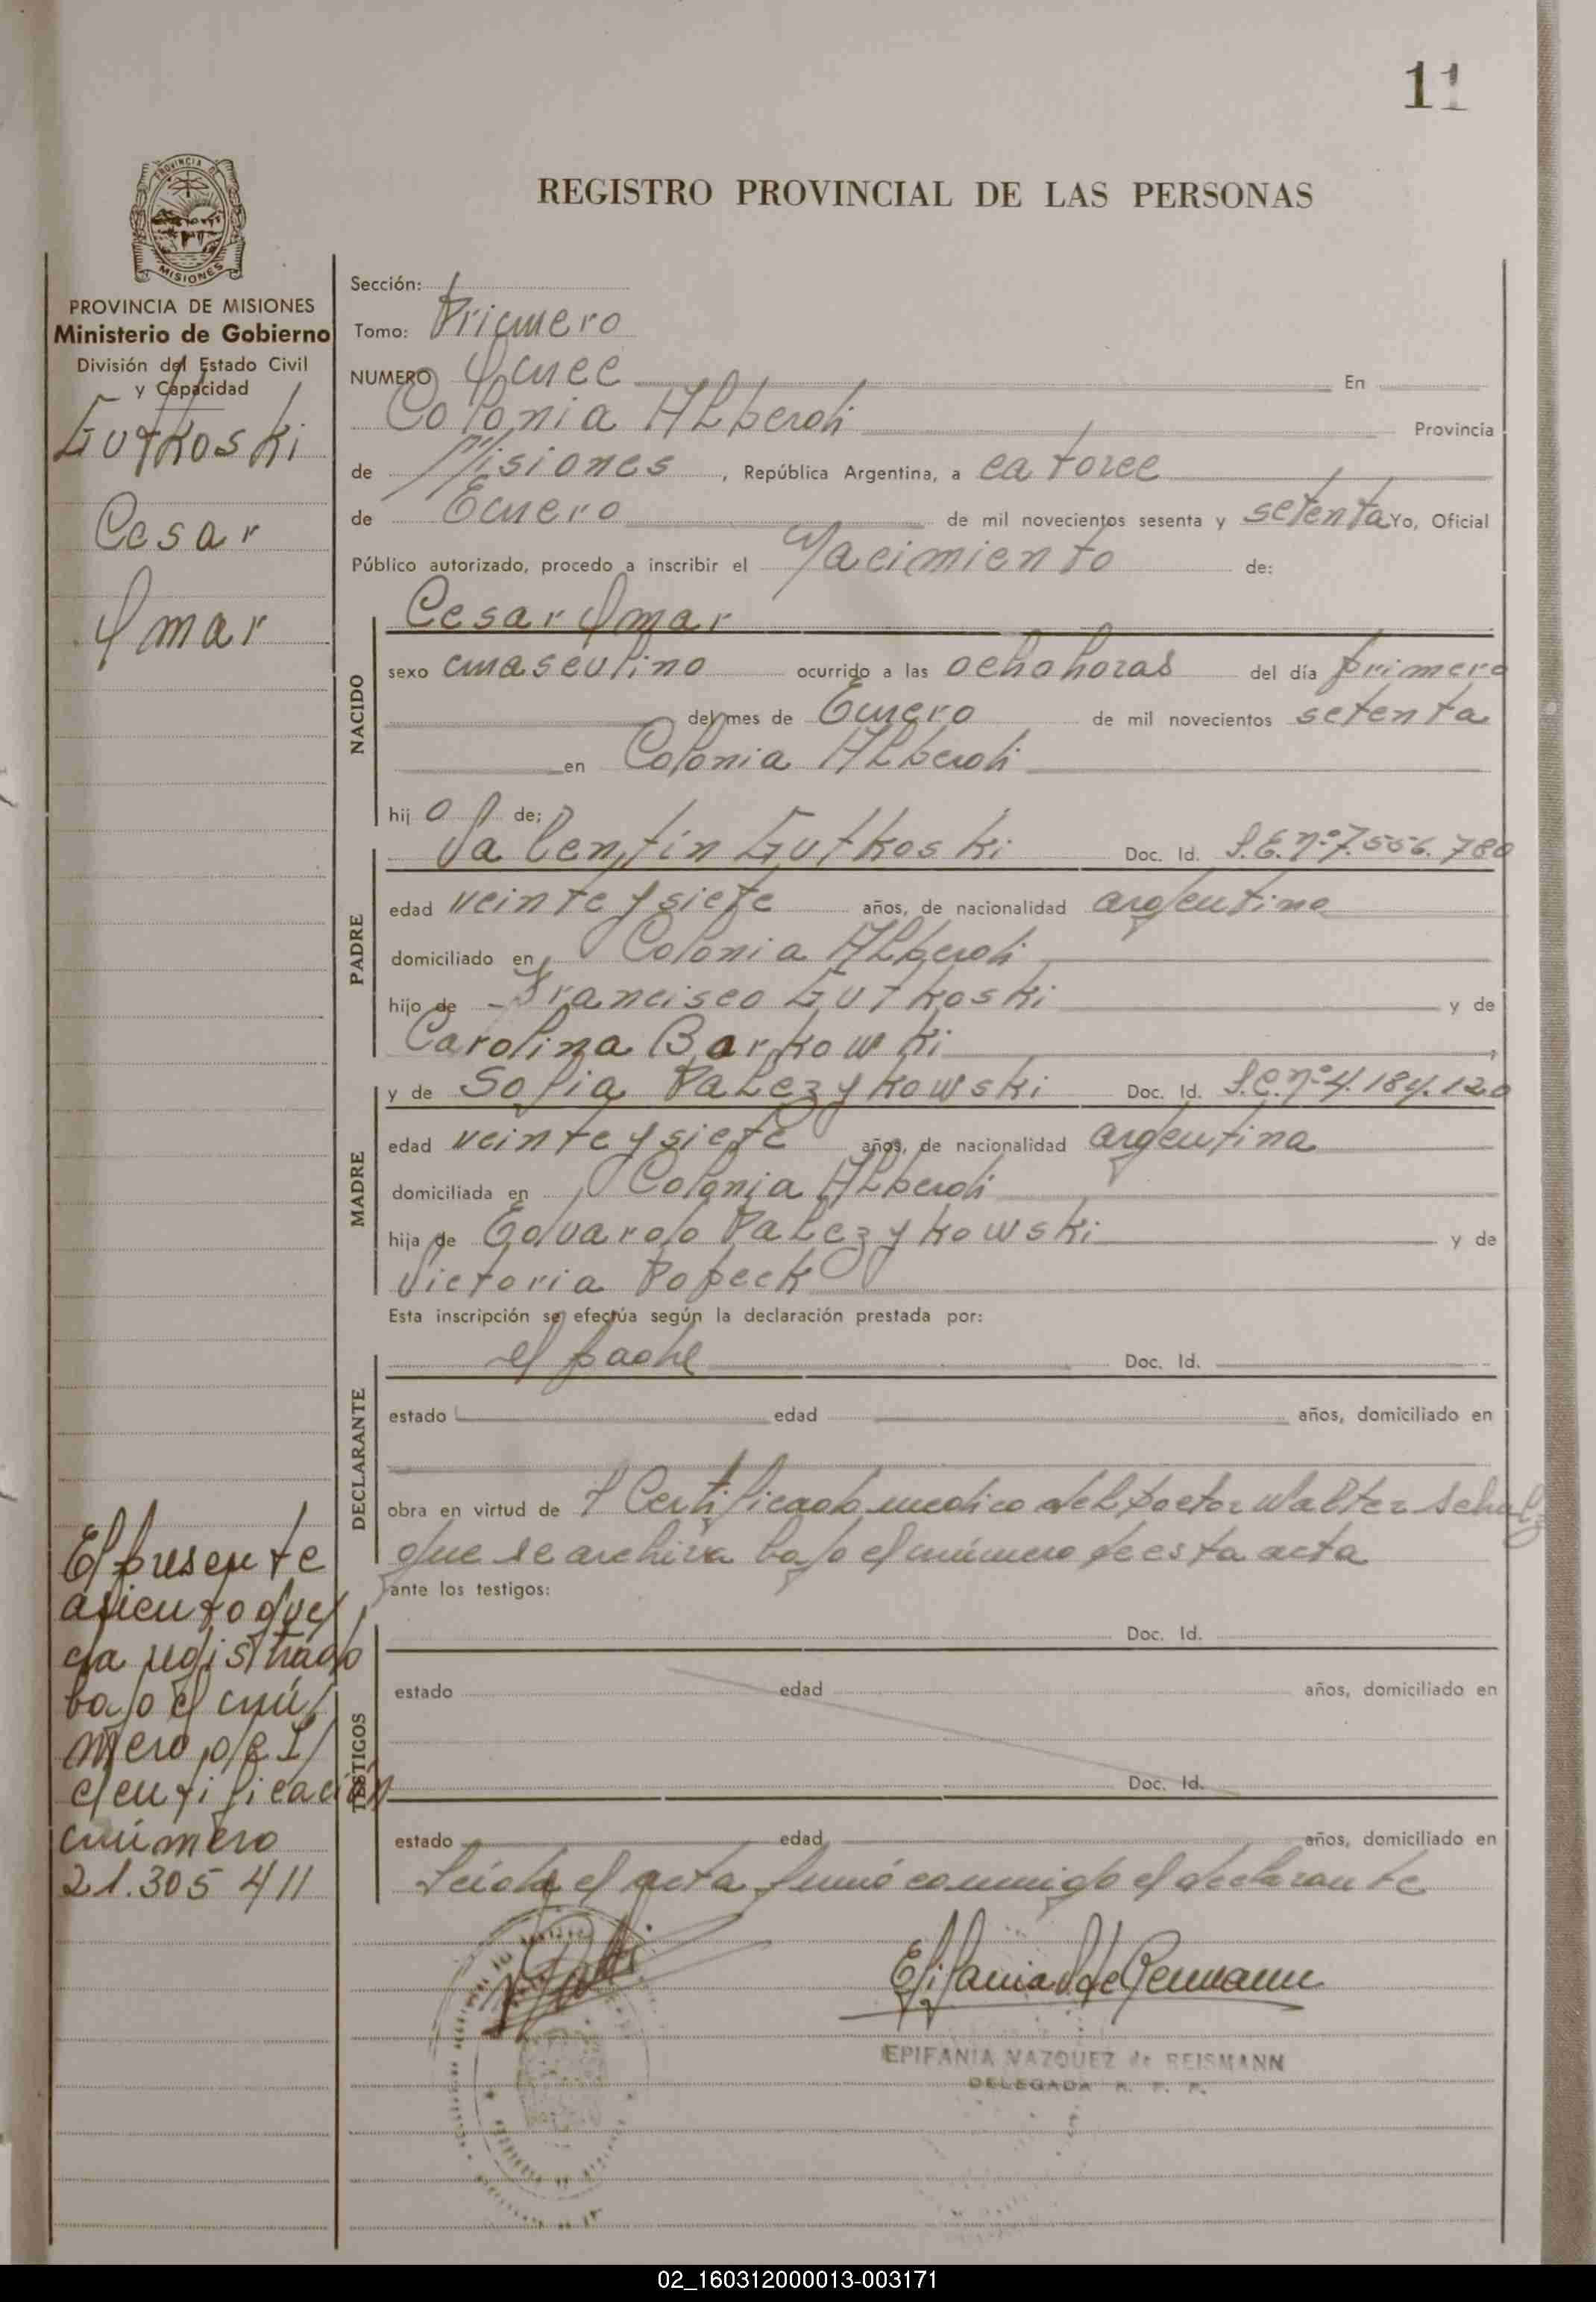 11
PROVINCIA DE MISIONES
REGISTRO PROVINCIAL DE LAS PERSONAS
PROVINCIA DE MISIONES
Ministerio de Gobierno
División del Estado Civil
y Capacidad
Gutkoski
Cesar
Omar
Sección:
Tomo: Primero
NUMERO Once En
Colonia Alberdi Provincia
de Misiones, República Argentina, a catorce
de Enero de mil novecientos sesenta y setenta Yo, Oficial
Público autorizado, procedo a inscribir el Nacimiento de:
NACIDO
Cesar Omar
sexo masculino ocurrido a las ocho horas del día primero
del mes de Enero de mil novecientos setenta
en Colonia Alberdi
hij o de;
PADRE
Valentin Gutkoski Doc. Id. L.E. nº 7.556.780
edad veinte y siete años, de nacionalidad argentino
domiciliado en Colonia Alberdi
hijo de Francisco Gutkoski y de
Carolina Barkowski
MADRE
y de Sofia Palczykowski Doc. Id. L.C. nº 4.184.120
edad veinte y siete años, de nacionalidad argentina
domiciliada en Colonia Alberdi
hija de Eduardo Palczykowski y de
Victoria Popeck
Esta inscripción se efectúa según la declaración prestada por:
DECLARANTE
el padre Doc. Id.
estado edad años, domiciliado en
obra en virtud de Certificado medico del Doctor Walter Schulz
que se archiva bajo el número de esta acta
ante los testigos:
TESTIGOS
Doc. Id.
estado edad años, domiciliado en
Doc. Id.
estado edad años, domiciliado en
Leida el acta firmó conmigo el declarante
El presente
asiento que/
da registrado
bajo el nú/
mero de I/
dentificación
número
21.305 411
Epifania V. de Reismann
EPIFANIA VAZQUEZ de REISMANN
DELEGADA R. P. P.
02_160312000013-003171